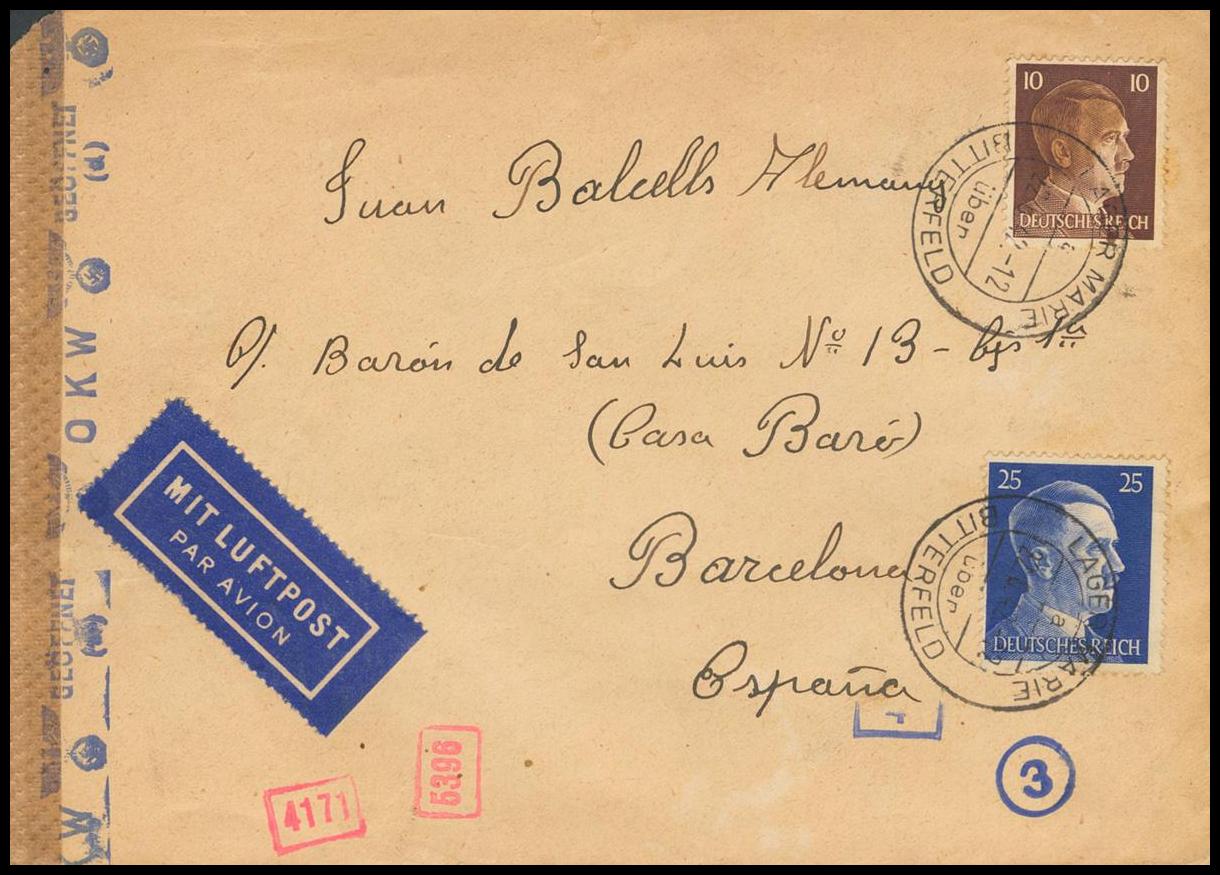 10 10
DEUTSCHES REICH
LAGER MARIE
über
BITTERFELD
Juan Balcells Alemany
C/. Barón de San Luis Nº 13 - bjs 1ª
(Casa Baró)
Barcelona
España
25 25
DEUTSCHES REICH
LAGER MARIE
über
BITTERFELD
a
MIT LUFTPOST
PAR AVION
GEÖFFNET
(d)
OKW
GEÖFFNET
(d)
W
4171
5396
3